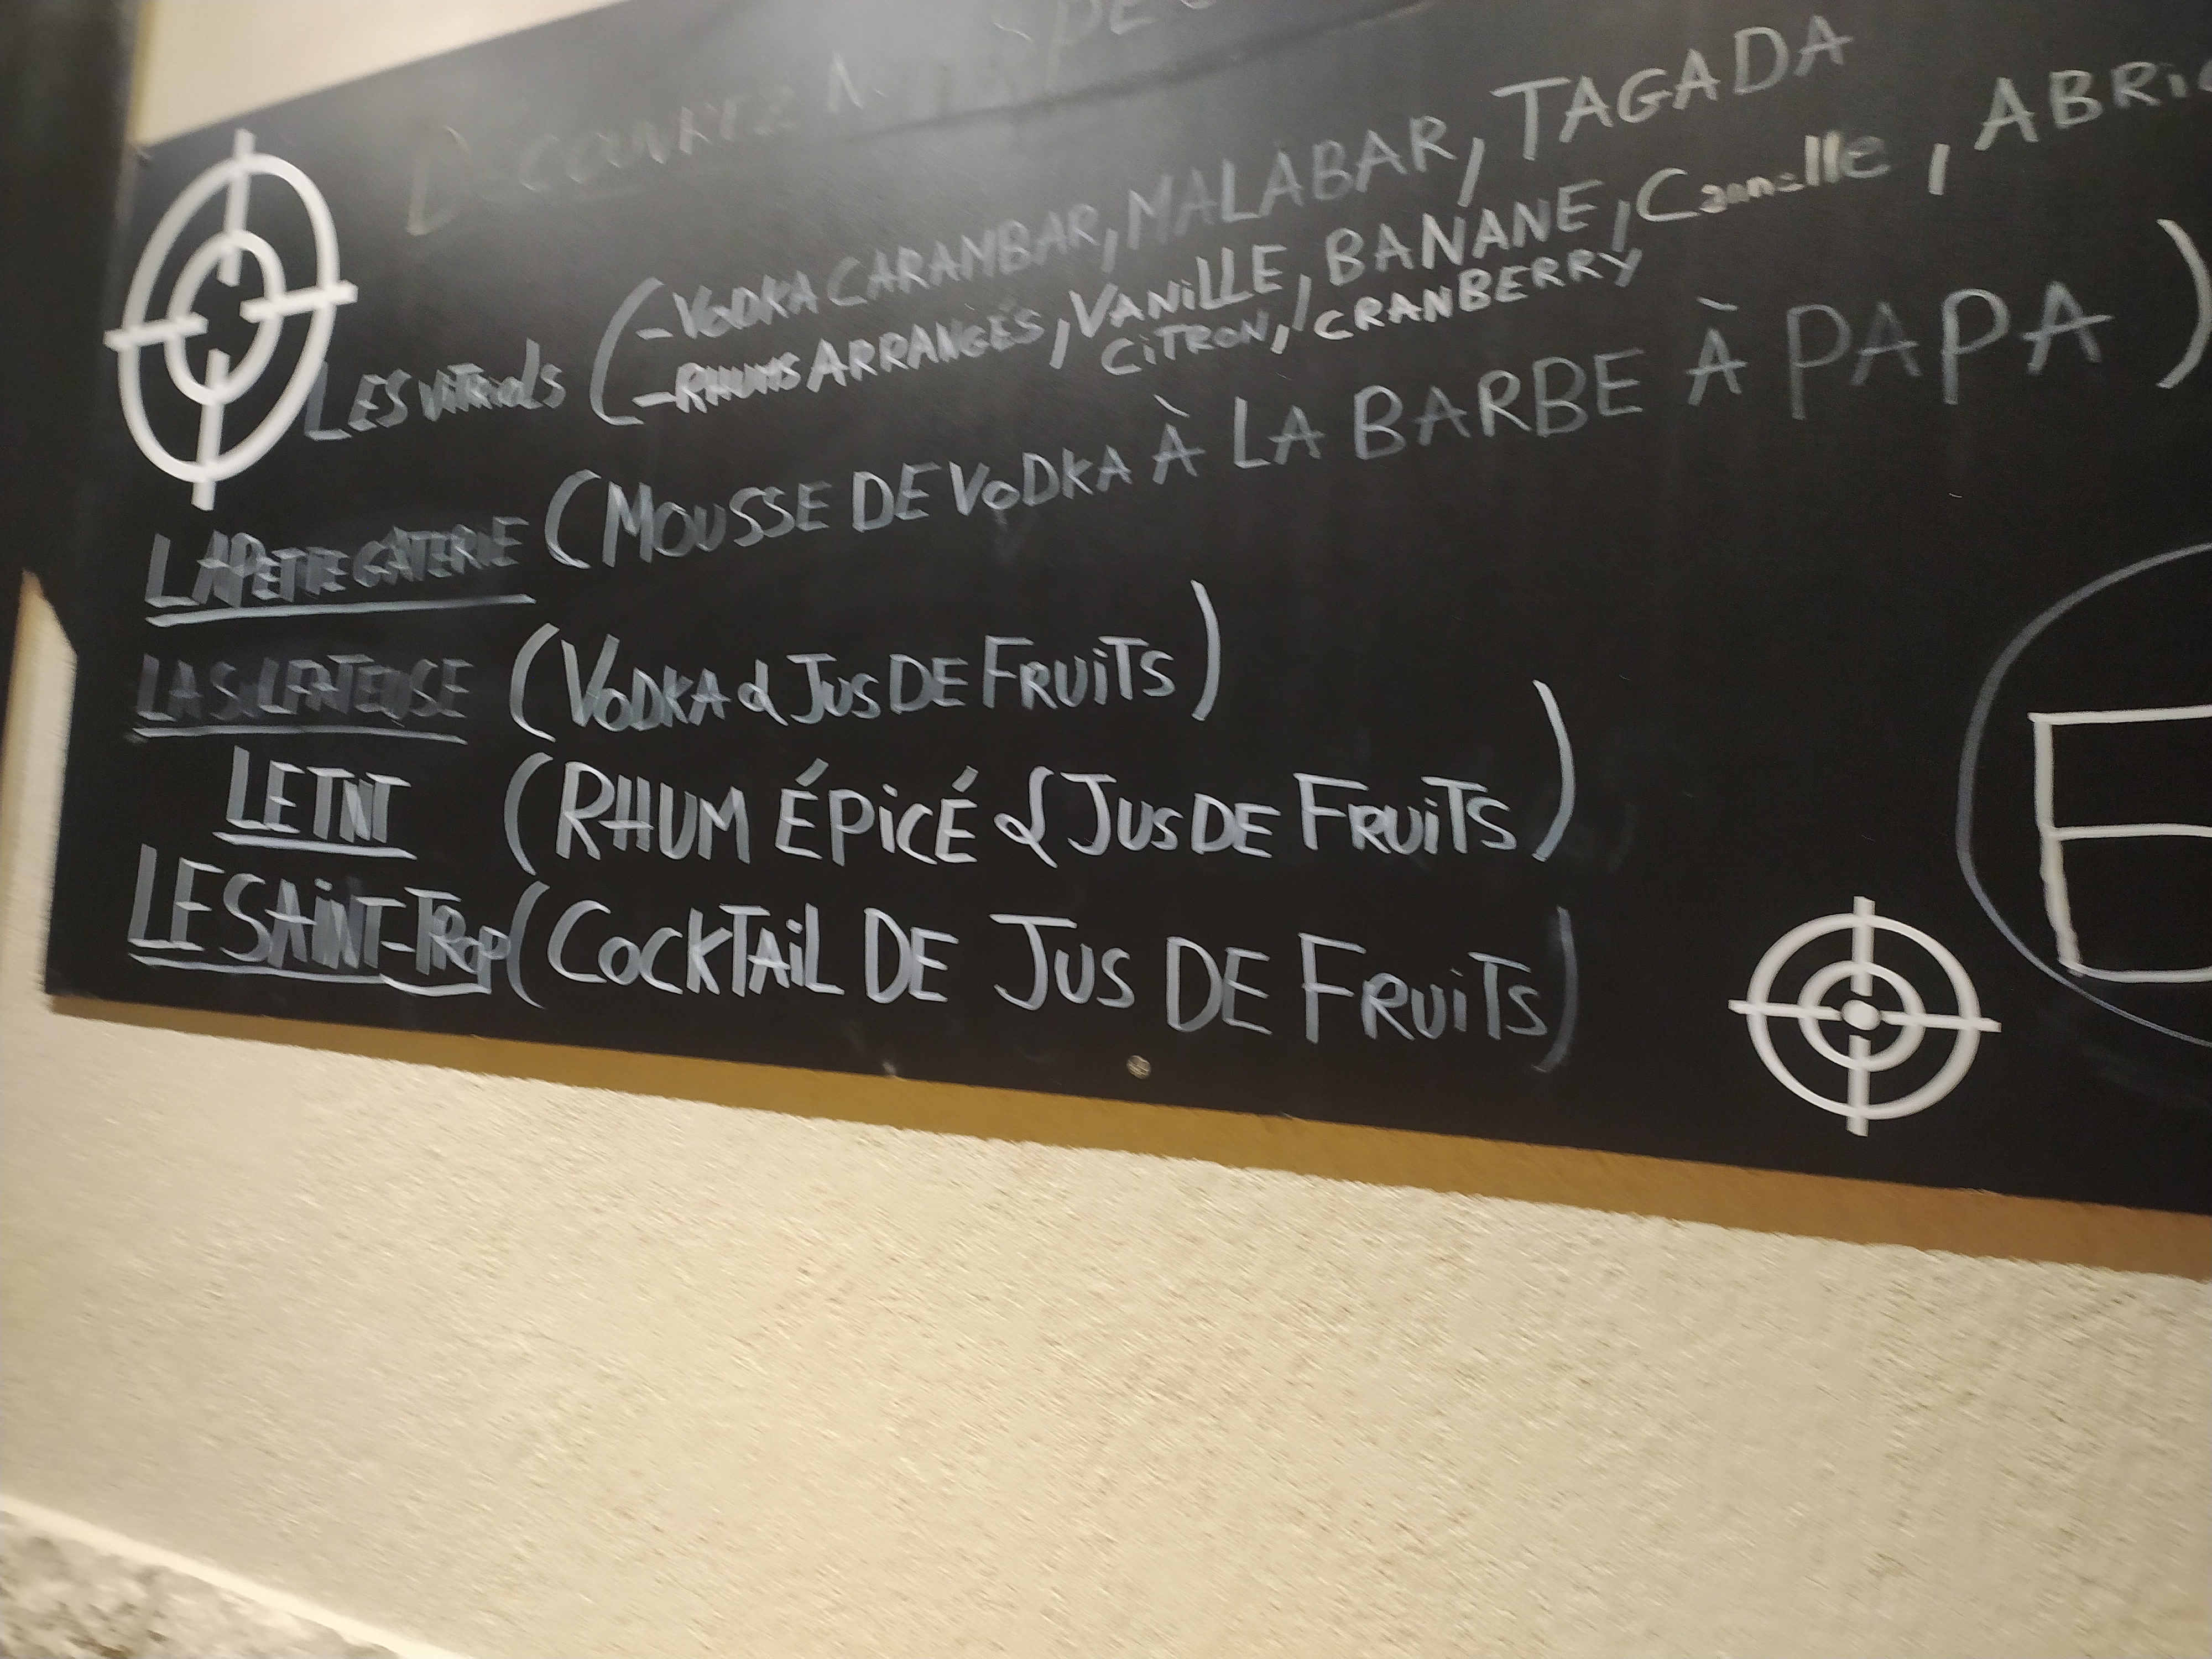 DÉCOUVREZ NOS SPÉ
LES VITRIOLS (-VODKA CARAMBAR, MALABAR, TAGADA
-RHUMS ARRANGÉS, VANILLE, BANANE, Cannelle, ABRIC
CITRON, CRANBERRY
LA PETITE GÂTERIE (MOUSSE DE VODKA À LA BARBE À PAPA)
LA SULFATEUSE (VODKA & JUS DE FRUITS)
LE TNT (RHUM ÉPICÉ & JUS DE FRUITS)
LE SAINT-TROP (COCKTAIL DE JUS DE FRUITS)